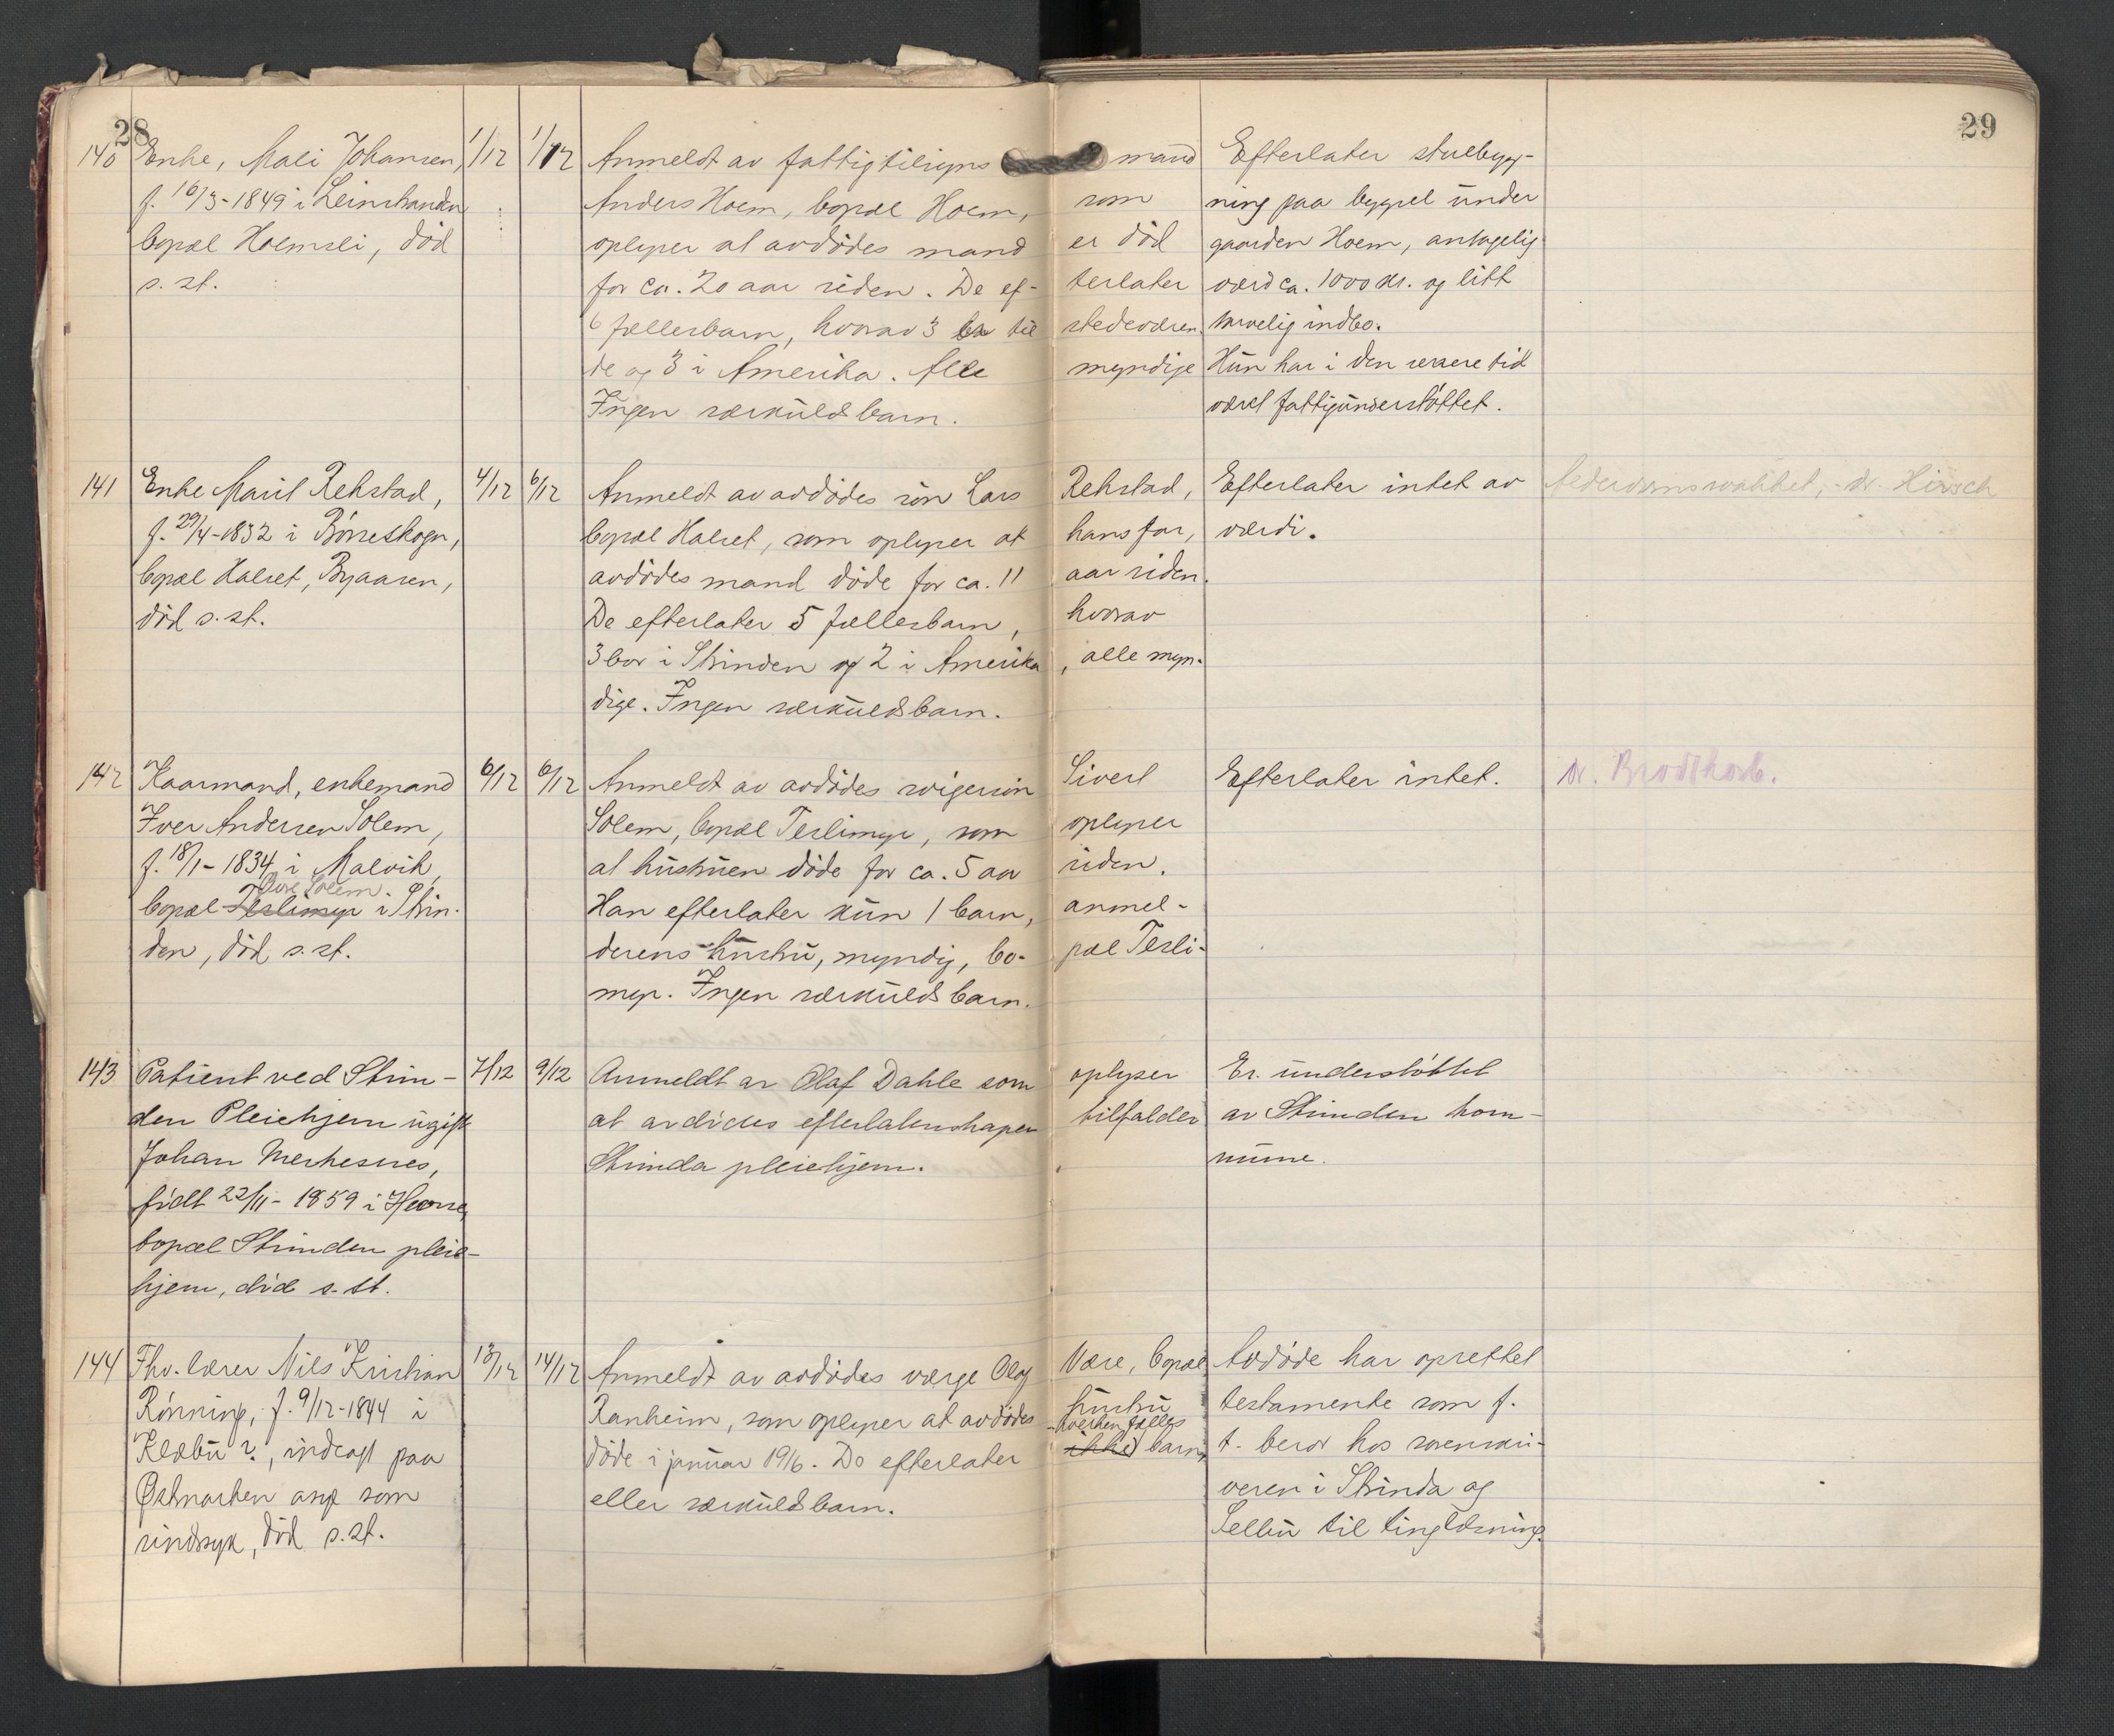 28
29
140 Enke, Mali Johansen, 1/12 1/12 Anmeldt av fattigtilsyns mand Efterlater stuebygg-
f. 16/3-1849 i Leinstranden Anders Hoem, bopæl Hoem, som ning paa bygsel under
bopæl Hoemsli, død oplyser at avdødes mand er død gaarden Hoem, antagelig
s. st. for ca. 20 aar siden. De ef- terlater værd ca. 1000 kr. og litt
6 fællesbarn, hvorav 3 er til stedeværen tarvelig indbo.
de og 3 i Amerika. Alle myndige Hun har i den senere tid
Ingen særkuldsbarn. været fattigunderstøttet.
141 Enke Marit Rekstad, 4/12 6/12 Anmeldt av avdødes søn Lars Rekstad, Efterlater intet av Alderdomssvakhet, dr. Hirsch
f. 29/4-1832 i Børseskogn, bopæl Halset, som oplyser at hans far, værdi.
bopæl Halset, Byaasen, avdødes mand døde for ca. 11 aar siden.
død s. st. De efterlater 5 fællesbarn, hvorav
3 bor i Strinden og 2 i Amerika, alle myn-
dige. Ingen særkuldsbarn.
142 Kaarmand, enkemand 6/12 6/12 Anmeldt av avdødes svigersøn Sivert Efterlater intet. Dr. Brodtkorb.
Iver Andersen Solem, Solem, bopæl Teslimyr, som oplyser
f. 18/1-1834 i Malvik, at hustruen døde for ca. 5 aar siden.
Øvre Solem
bopæl Teslimyr i Strin- Han efterlater kun 1 barn, anmel-
den, død s. st. derens hustru, myndig, bo- pæl Tesli-
myr. Ingen særkuldsbarn.
143 Patient ved Strin- 7/12 9/12 Anmeldt av Olaf Dahle som oplyser Er understøttet
den Pleiehjem ugift at avdødes efterlatenskaper tilfalder av Strinden kom-
Johan Merkesnes, Strinda pleiehjem. mune.
født 22/11-1859 i Hevne,
bopæl Strinden pleie-
hjem, død s. st.
144 Fhv. lærer Nils Kristian 13/12 14/12 Anmeldt av avdødes værge Olaf Være, bopæl Avdøde har oprettet
Rønning, f. 9/12-1844 i Ranheim, som oplyser at avdødes hustru testamente som f.
hverken fælles
Klæbu?, indlagt paa døde i januar 1916. De efterlater ikke barn, t. beror hos sorenskri-
Østmarken asyl som eller særkuldsbarn. veren i Strinda og
sindssyk, død s. st. Selbu til tinglæsning.